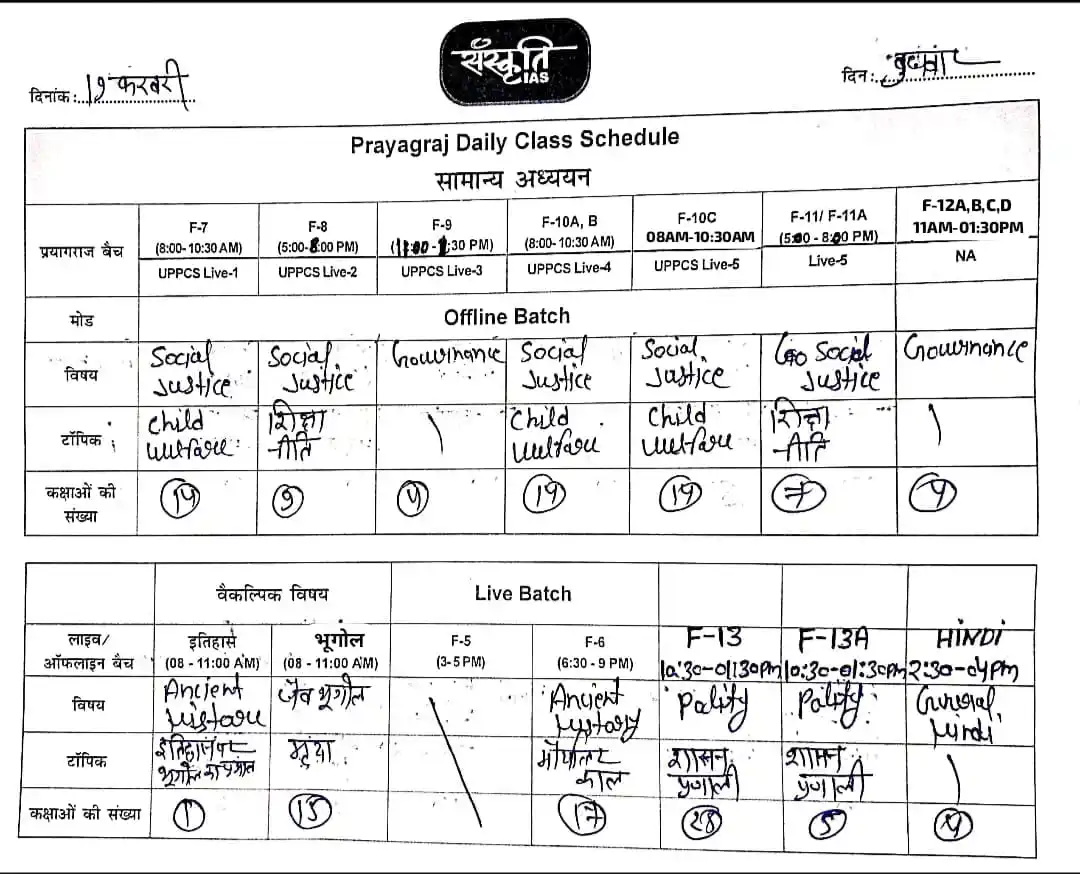 संस्कृति
IAS
दिनांक: 19 फरबरी
दिन: बुधवार
Prayagraj Daily Class Schedule
सामान्य अध्ययन
प्रयागराज बैच
F-7
(8:00-10:30 AM)
UPPCS Live-1
F-8
(5:00-8:00 PM)
UPPCS Live-2
F-9
:30 PM)
UPPCS Live-3
F-10A, B
(8:00-10:30 AM)
UPPCS Live-4
F-10C
08AM-10:30AM
UPPCS Live-5
F-11/ F-11A
(5:00 - 8:00 PM)
Live-5
F-12A,B,C,D
11AM-01:30PM
NA
मोड
Offline Batch
विषय
Social
Justice
Social
Justice
Governance
Social
Justice
Social
Justice
Social
Justice
Governance
टॉपिक
Child
welfare
शिक्षा
नीति
Child
welfare
Child
welfare
शिक्षा
नीति
कक्षाओं की
संख्या
9
4
19
19
7
वैकल्पिक विषय
Live Batch
लाइव/
ऑफलाइन बैच
इतिहास
(08 - 11:00 AM)
भूगोल
(08 - 11:00 AM)
F-5
(3-5 PM)
F-6
(6:30 - 9 PM)
F-13
10:30-01:30PM
F-13A
10:30-01:30PM
HINDI
2:30-04PM
विषय
Ancient
History
जैव भूगोल
Ancient
History
Polity
Polity
General
Hindi
टॉपिक
भूगोल का प्रभाव
मृदा
काल
शासन
प्रणाली
शासन
प्रणाली
कक्षाओं की संख्या
1
15
17
28
5